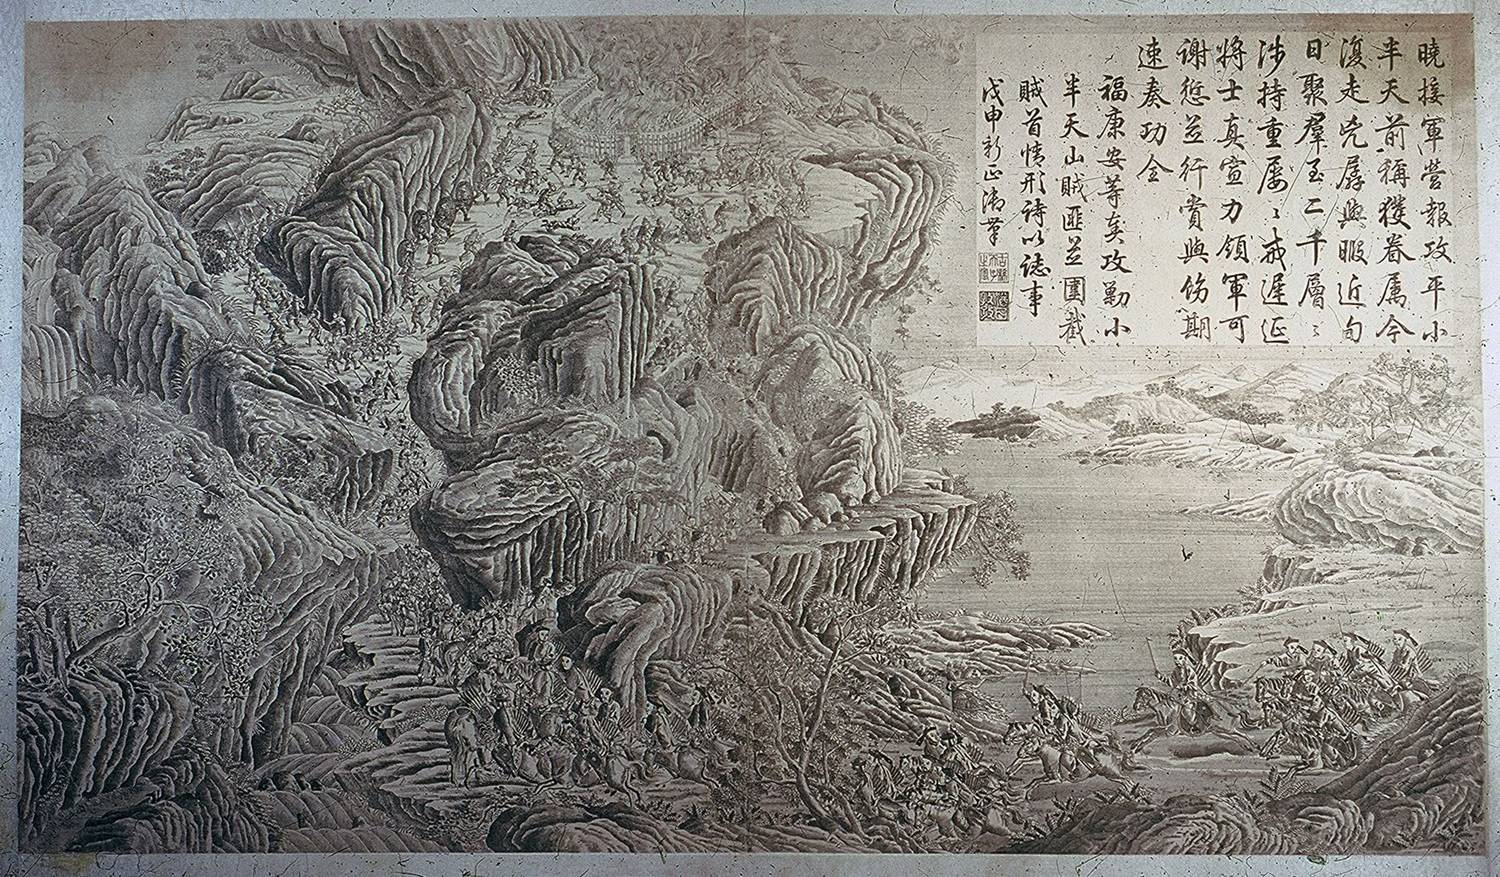 曉接軍營報攻平小
半天前稱獲眷屬今
復走兇孱與暇近旬
日聚羣至二千層〻
涉持重屢〻戒遲延
將士真宣力領軍可
謝愆並行賞與飭期
速奏功全
福康安等奏攻勦小
半天山賊匪並圍截
賊首情形詩以誌事
戊申新正御筆